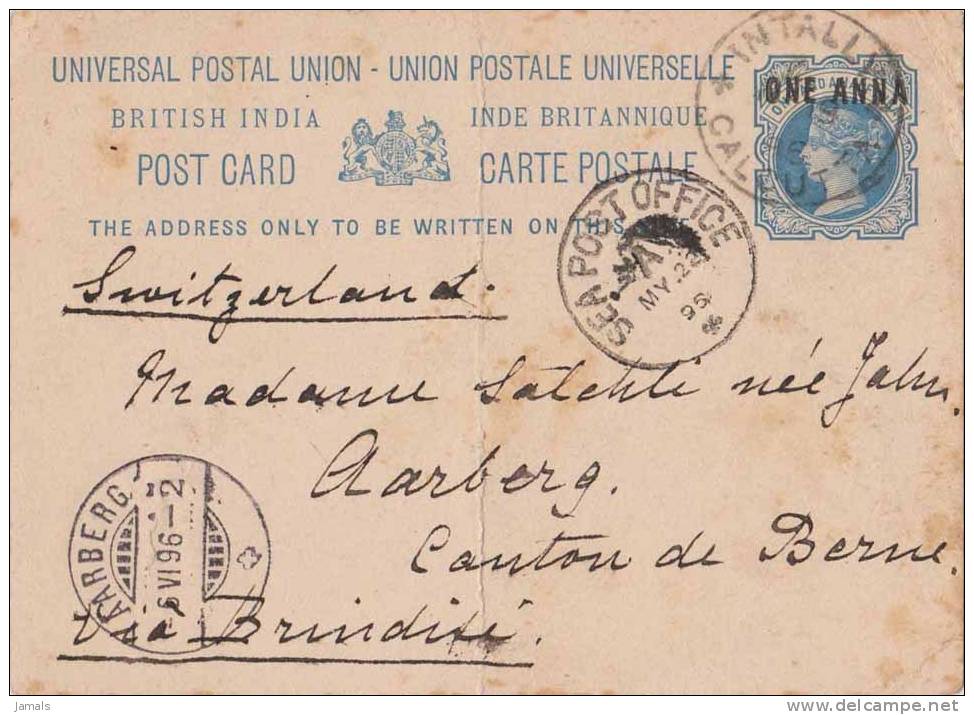 UNIVERSAL POSTAL UNION - UNION POSTALE UNIVERSELLE
BRITISH INDIA INDE BRITANNIQUE
POST CARD CARTE POSTALE
THE ADDRESS ONLY TO BE WRITTEN ON THIS
ONE ANNA
INTALLY
CALCUTTA
SEA POST OFFICE
MY 23
96
Switzerland.
Madame Salchli née Jahn.
Aarberg.
Canton de Berne.
AARBERG
6 VI 96-2
Via Brindisi.
Jamals
www.delcampe.net